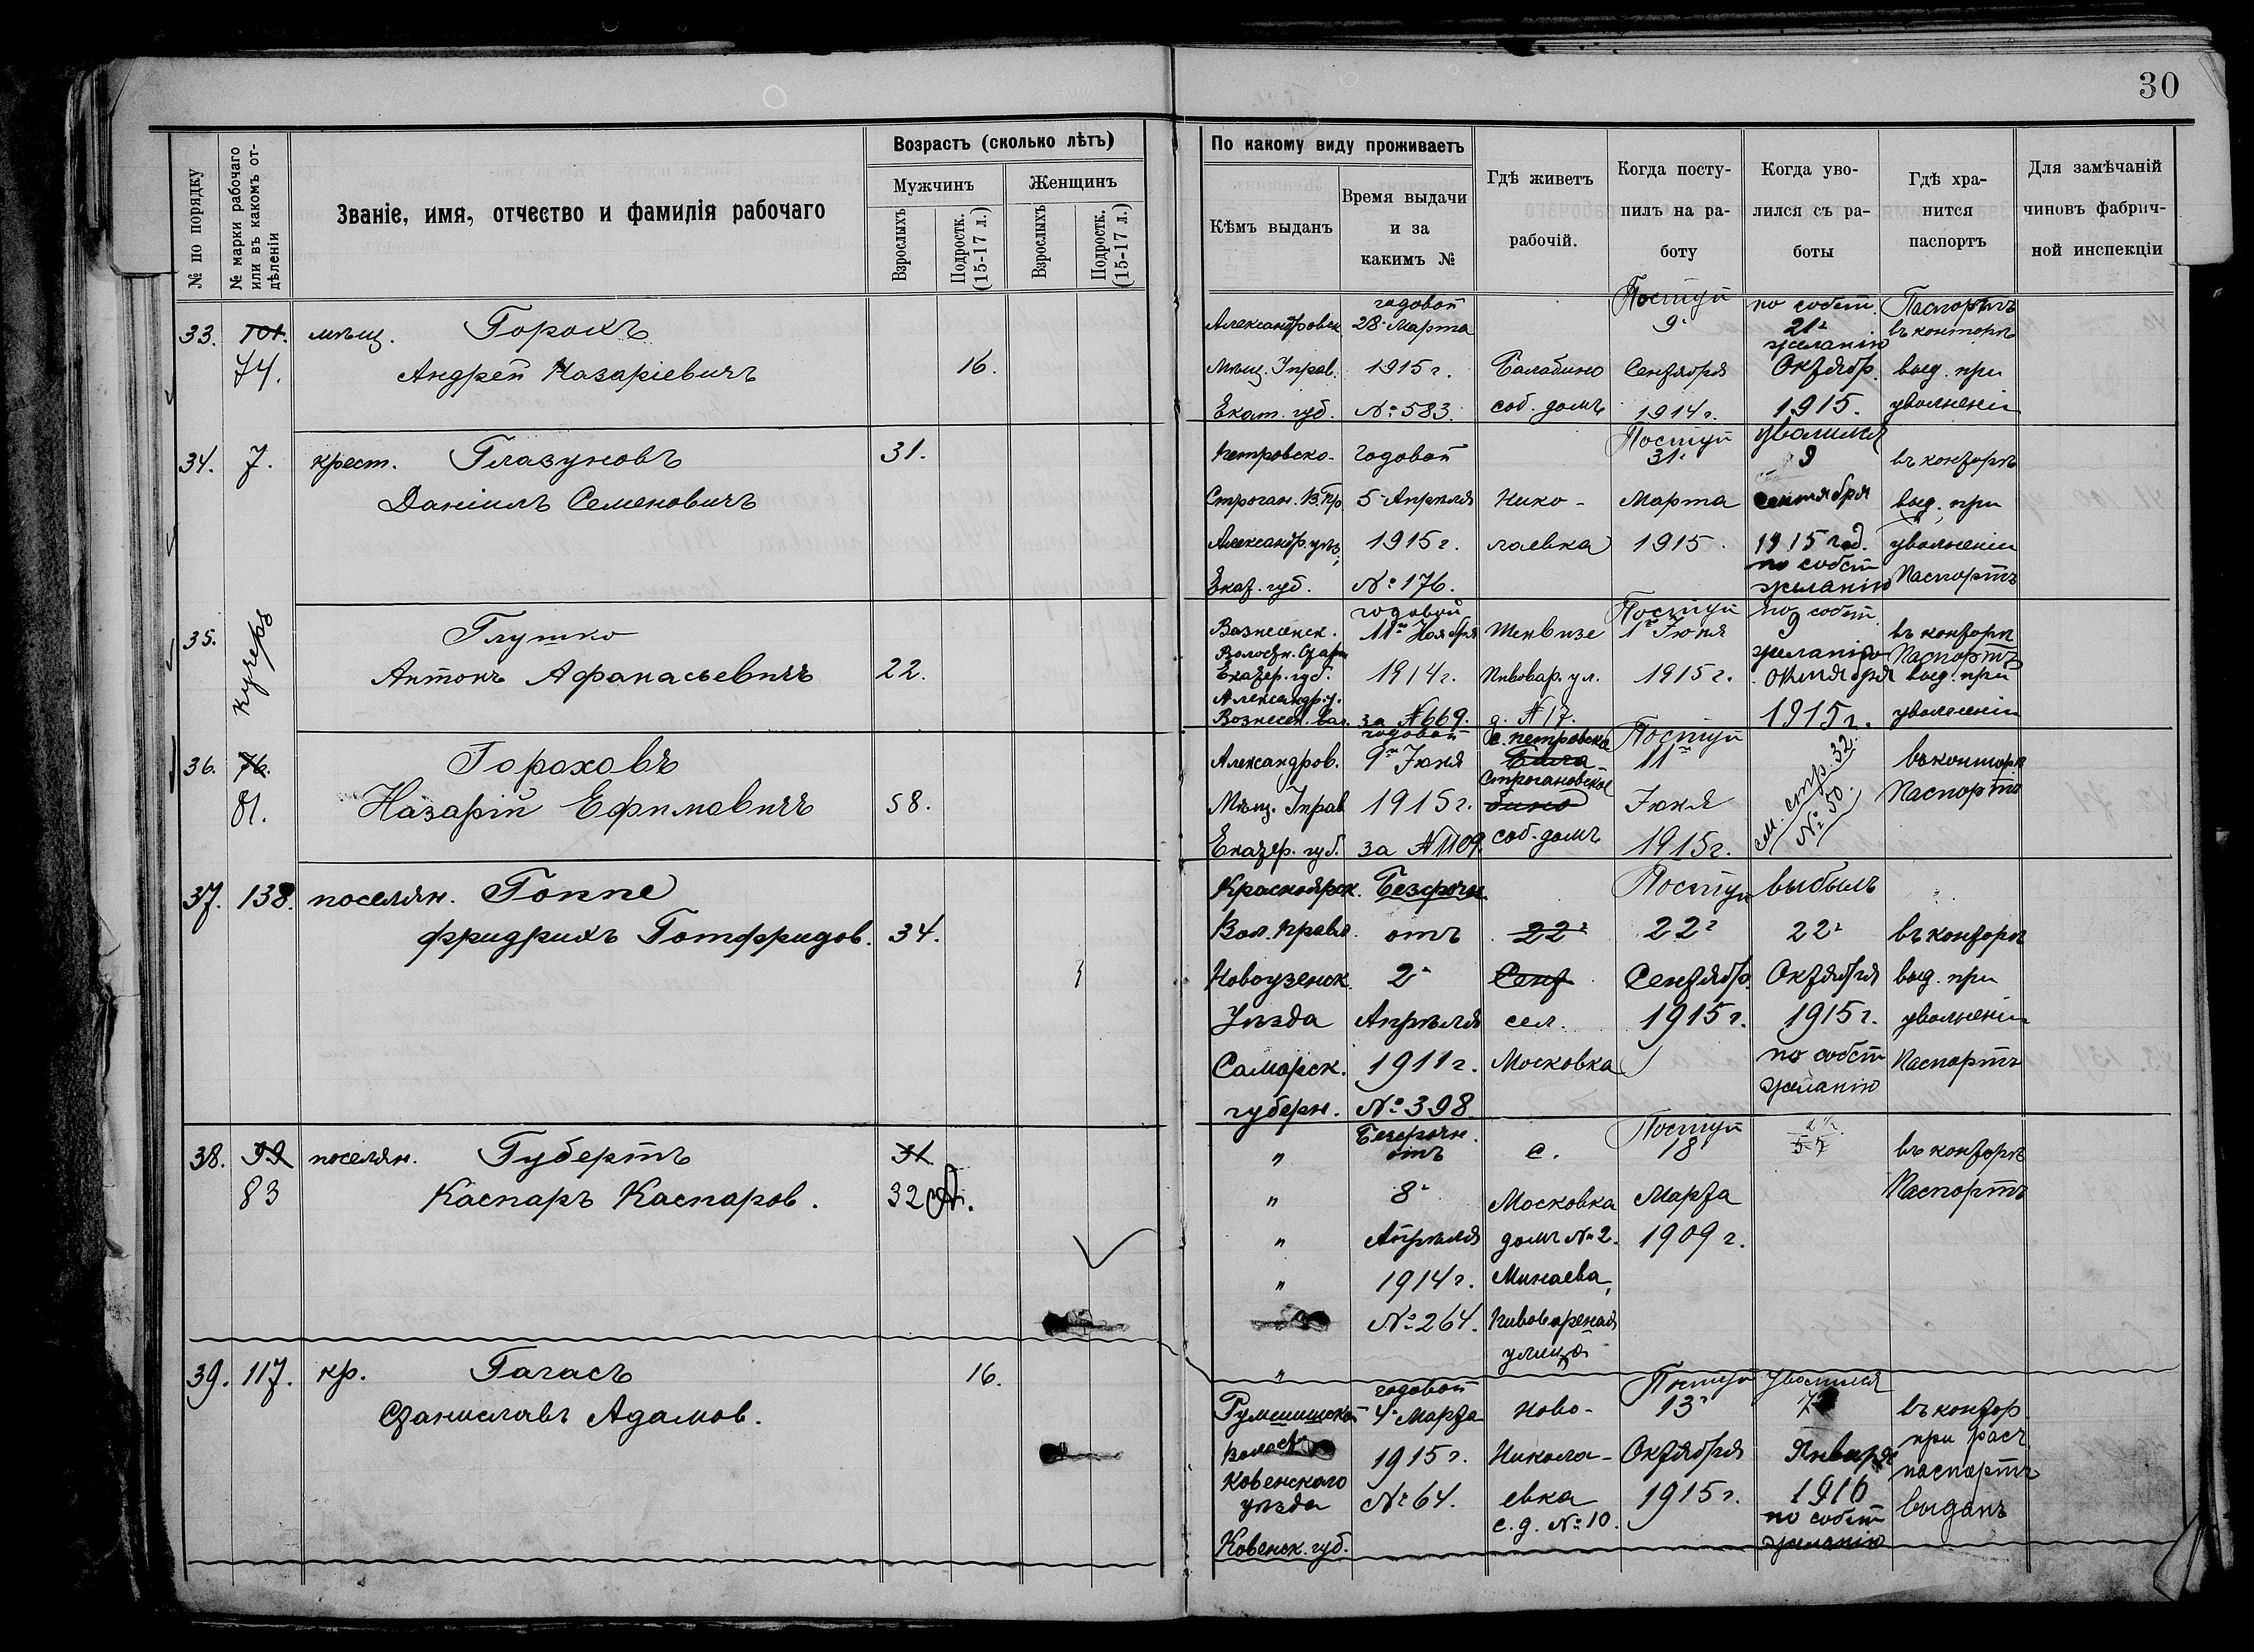 30
№ по порядку
№ марки рабочаго или въ какомъ от-дѣленіи
Званіе, имя, отчество и фамилія рабочаго
Возрастъ (сколько лѣтъ)
Мужчинъ
Женщинъ
Взрослыхъ
Подростк. (15-17 л.)
Взрослыхъ
Подростк. (15-17 л.)
По какому виду проживаетъ
Кѣмъ выданъ
Время выдачи
и за
какимъ №
Гдѣ живетъ
рабочій.
Когда посту-
пилъ на ра-
боту
Когда уво-
лился съ ра-
боты
Гдѣ хра-
нится
паспортъ
Для замѣчаній
чиновъ фабрич-
ной инспекціи
33. 101. мѣщ. Горохъ
74. Андрей Назаріевичъ 16.
Александровск.
Мѣщ. Управ.
Екат. губ.
годовой
28 Марта
1915 г.
№ 583.
Балабино
соб. домъ
Поступ
9
Сентября
1914 г.
по собст.
21
желанію
Октябр.
1915.
Паспортъ
въ конторѣ
выд. при
увольненіи
34. 7. крест. Глазуновъ 31.
Даніилъ Семеновичъ
Петровско-
Строган. В. Пр.
Александр. уѣз.
Екат. губ.
годовой
5 Апрѣля
1915 г.
№ 176.
Нико-
лаевка
Поступ
31
Марта
1915.
уволился
9
сентября
1915 год.
по собст
желанію
въ конторѣ
выд. при
увольненіи
Паспортъ
35. кучеръ Глушко
Антонъ Афанасьевичъ 22.
Вознесенск.
Екатер. губ.
Александр. у.
Вознесен. вол.
годовой
11 Ноября
1914 г.
за № 669.
Шенвизе
Пивовар. ул.
д. № 17.
Поступ
1 Іюня
1915 г.
по собст
9
желанію
октября
1915 г.
въ контор
Паспортъ
выд. при
увольненіи
36. 76. Гороховъ
81. Назарій Ефимовичъ 58.
Александров.
Мѣщ. Управ
Екатер. губ.
годовой
9 Іюня
1915 г.
за № 1109.
с. петровско
Бала
Строгановское
бино
соб. домъ
Поступ
11
Іюня
1915 г.
см. стр. 32.
№ 50.
въ контор
Паспортъ
37. 138. поселян. Гоппе
Фридрихъ Готфридов. 34.
Красноярск.
Вол. Правл.
Новоузенск.
Уѣзда
Самарск.
губерн.
Безсрочн.
отъ
2
Апрѣля
1911 г.
№ 398
22
Сент
сел.
Московка
Поступ
22
Сентябр.
1915 г.
выбылъ
22
Октября
1915 г.
по собст
желанію
въ конторѣ
выд. при
увольненіи
Паспортъ
38. 99 поселян. Губертъ 31.
83 Каспаръ Каспаров. 32
"
"
"
"
"
Безсрочн.
отъ
8
Апрѣля
1914 г.
№ 264.
с.
Московка
домъ № 2.
Минаева,
Пивоваренная
улица
Поступ
18
Марта
1909 г.
въ конторѣ
Паспортъ
39. 117. кр. Гагасъ 16.
Станиславъ Адамов.
Румшишской
Волост
Ковенскаго
уѣзда
Ковенск. губ.
годовой
4 Марта
1915 г.
№ 64.
Ново-
Никола-
евка
с. д. № 10.
Поступ
13
Октября
1915 г.
уволился
7
Января
1916
по собст
желанію
въ контор
при расч
паспортъ
выданъ